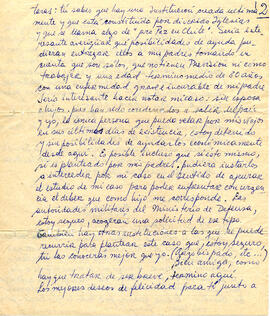 2
taras: tú sabes que hay una Institución creada últimamente
y que está constituida por diversas Iglesias
y que se llama algo de "pro Paz en Chile". Sería interesante
averiguar posibilidades de ayuda que
pudieran entregar ellos a mis padres tomando en
cuenta que son solos, que no tienen Previsión ni como
trabajar y una edad término medio de 80 años
con una enfermedad grave e incurable de mi padre
Sería interesante hacer notar mi caso: sin esposa
e hijos, que han sido condenados a salir del país
y yo, la única persona que puede velar por mis viejos
en sus últimos días de existencia, estoy detenido y
sin posibilidades de ayudarlos económicamente
desde aquí. Es posible incluso que esto mismo,
si se plantea por mis padres, pudiera instarlos
a interceder por mi caso en el sentido de apurar
el estudio de mi caso para poder enfrentar con urgencia
el deber que como hijo me corresponde. Las
autoridades militares del Ministerio de Defensa,
estoy seguro, acogerán una solicitud de ese tipo.
También hay otras instituciones a las que se puede
recurrir para plantear este caso que, estoy seguro,
tú las conocerás mejor que yo. (Arzobispado, etc...)
Bien amigo, como
hay que tratar de ser breve, termino aquí.
Los mejores deseos de felicidad para ti junto a